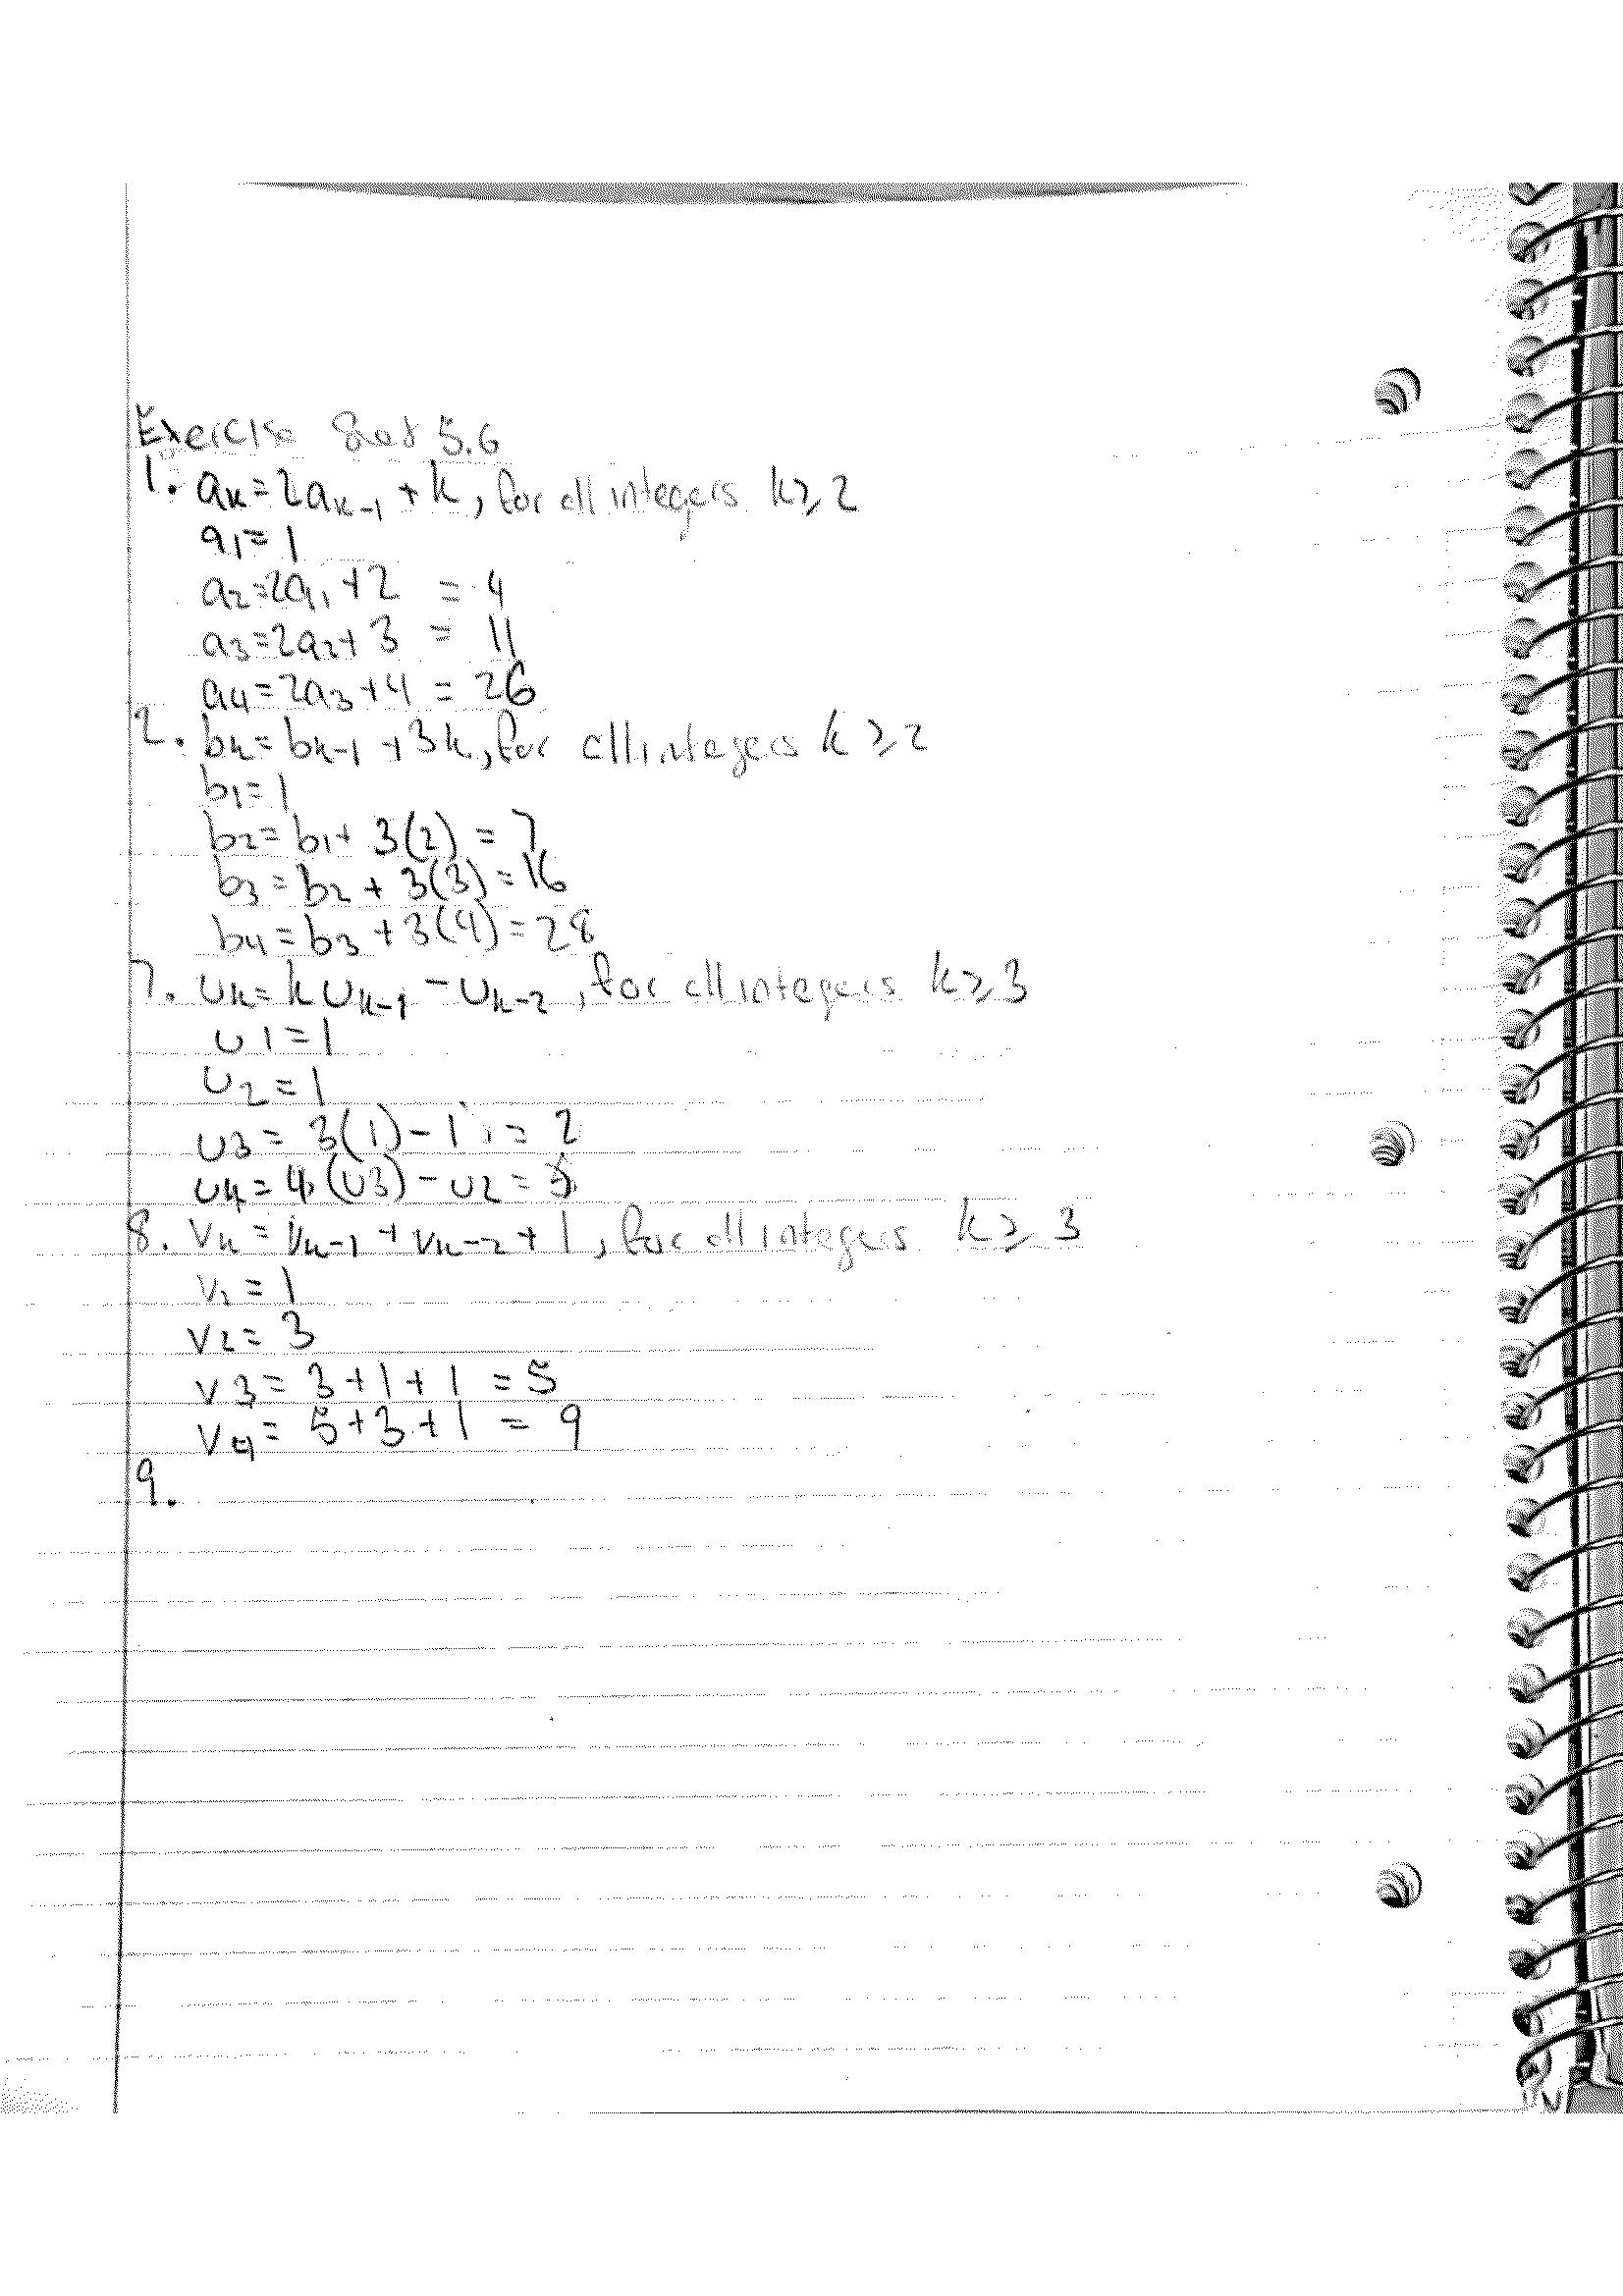 Exercise Set 5.6
1. aₖ = 2aₖ₋₁ + k, for all integers k ≥ 2
a₁ = 1
a₂ = 2a₁ + 2 = 4
a₃ = 2a₂ + 3 = 11
a₄ = 2a₃ + 4 = 26
2. bₖ = bₖ₋₁ + 3k, for all integers k ≥ 2
b₁ = 1
b₂ = b₁ + 3(2) = 7
b₃ = b₂ + 3(3) = 16
b₄ = b₃ + 3(4) = 28
7. uₖ = kuₖ₋₁ - uₖ₋₂, for all integers k ≥ 3
u₁ = 1
u₂ = 1
u₃ = 3(1) - 1 = 2
u₄ = 4(u₃) - u₂ =
8. vₖ = vₖ₋₁ + vₖ₋₂ + 1, for all integers k ≥ 3
v₁ = 1
v₂ = 3
v₃ = 3 + 1 + 1 = 5
v₄ = 5 + 3 + 1 = 9
9.